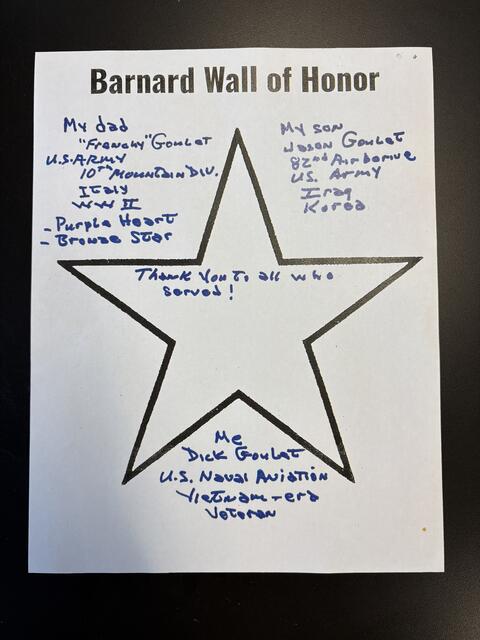 Barnard Wall of Honor
My dad
"Frenchy" Goulet
U.S. ARMY
10th Mountain Div.
Italy
WW II
- Purple Heart
- Bronze Star
My son
Jason Goulet
82nd Airborne
US. Army
Iraq
Korea
Thank You to all who
served!
Me
Dick Goulet
U.S. Naval Aviation
Vietnam-era
Veteran